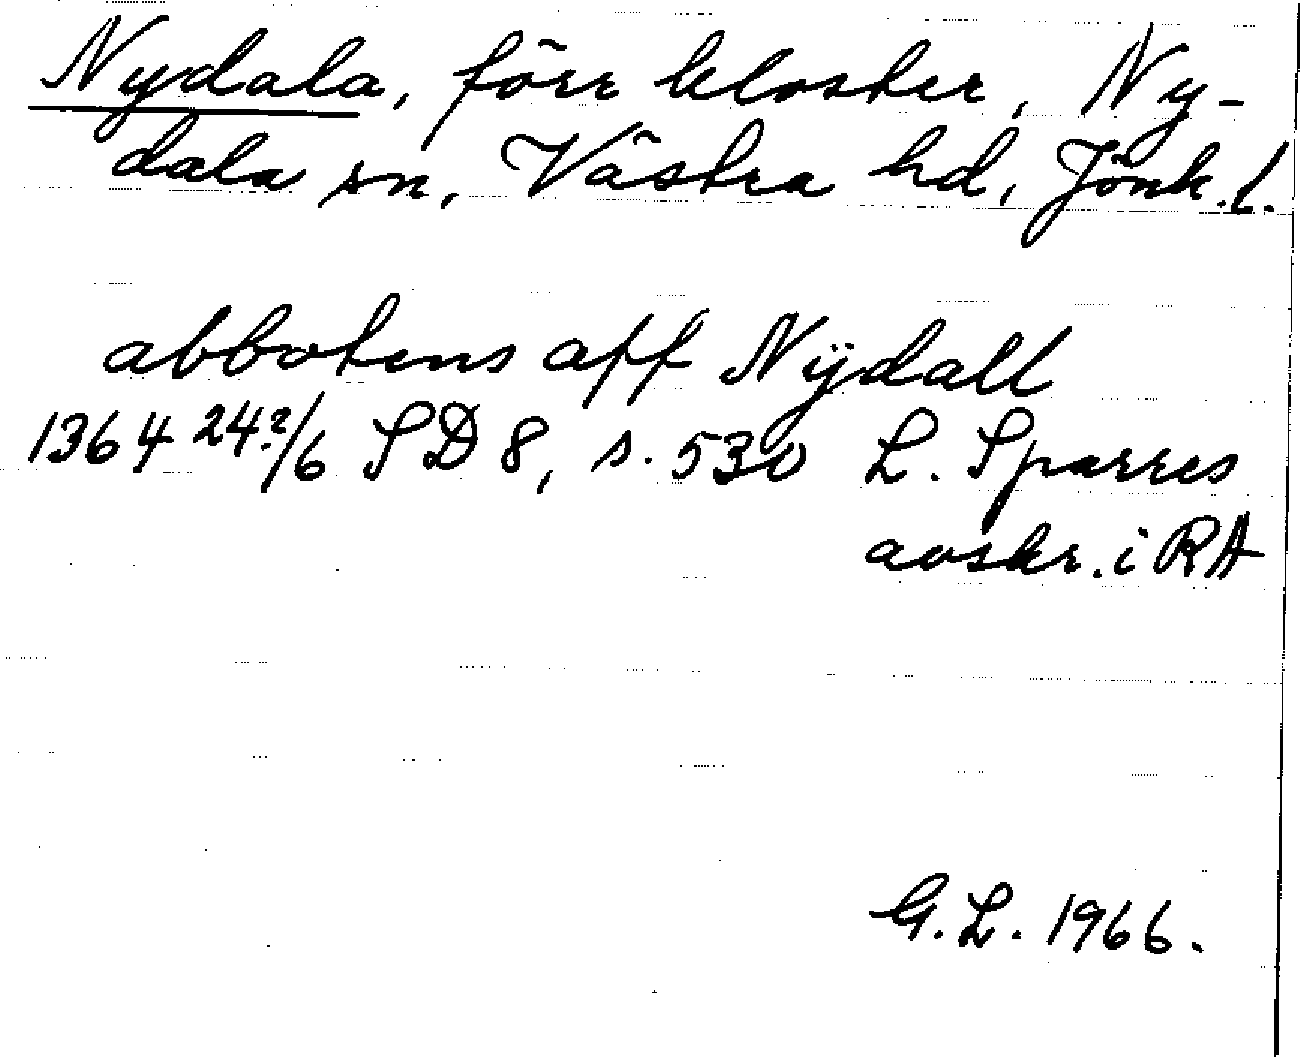 Nydala, förr kloster, Ny-
dala sn, Västra hd, Jönk. l.
abbotens aff Nÿdall
1364 24?/6 SD 8, s. 530 L. Sparres
avskr. i RA
G. L. 1966.